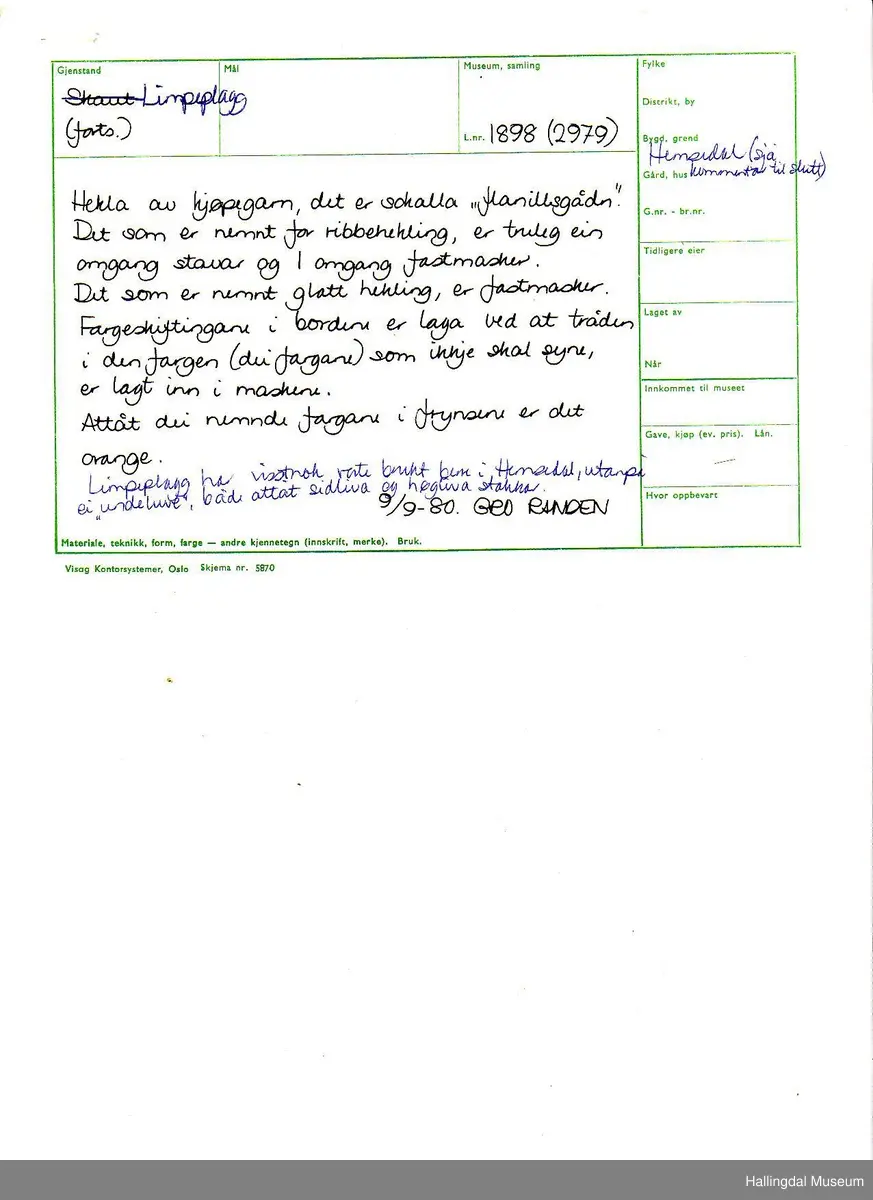 Gjenstand
Skaut Limpeplagg
(forts.)
Mål
Museum, samling
L.nr. 1898 (2979)
Fylke
Distrikt, by
Bygd, grend
Hemsedal (sjå
Gård, hus kommentar til slutt)
G.nr. - br.nr.
Tidligere eier
Laget av
Når
Innkommet til museet
Gave, kjøp (ev. pris). Lån.
Hvor oppbevart
Hekla av kjøpegarn, det er sokalla „flanillsgådn".
Det som er nemnt for ribbehekling, er truleg ein
omgang stavar og 1 omgang fastmasker.
Det som er nemnt glatt hekling, er fastmasker.
Fargeskiftingane i bordene er laga ved at tråden
i den fargen (dei fargane) som ikkje skal syne,
er lagt inn i maskene.
Attåt dei nemnde fargane i frynsene er det
orange.
Limpeplagg ha visstnok vore brukt bere i Hemsedal, utanpå
ei „undeluve", både attåt sidliva og høgliva stakka.
9/9-80. GRO RANDEN
Materiale, teknikk, form, farge — andre kjennetegn (innskrift, merke). Bruk.
Visag Kontorsystemer, Oslo Skjema nr. 5870
Hallingdal Museum